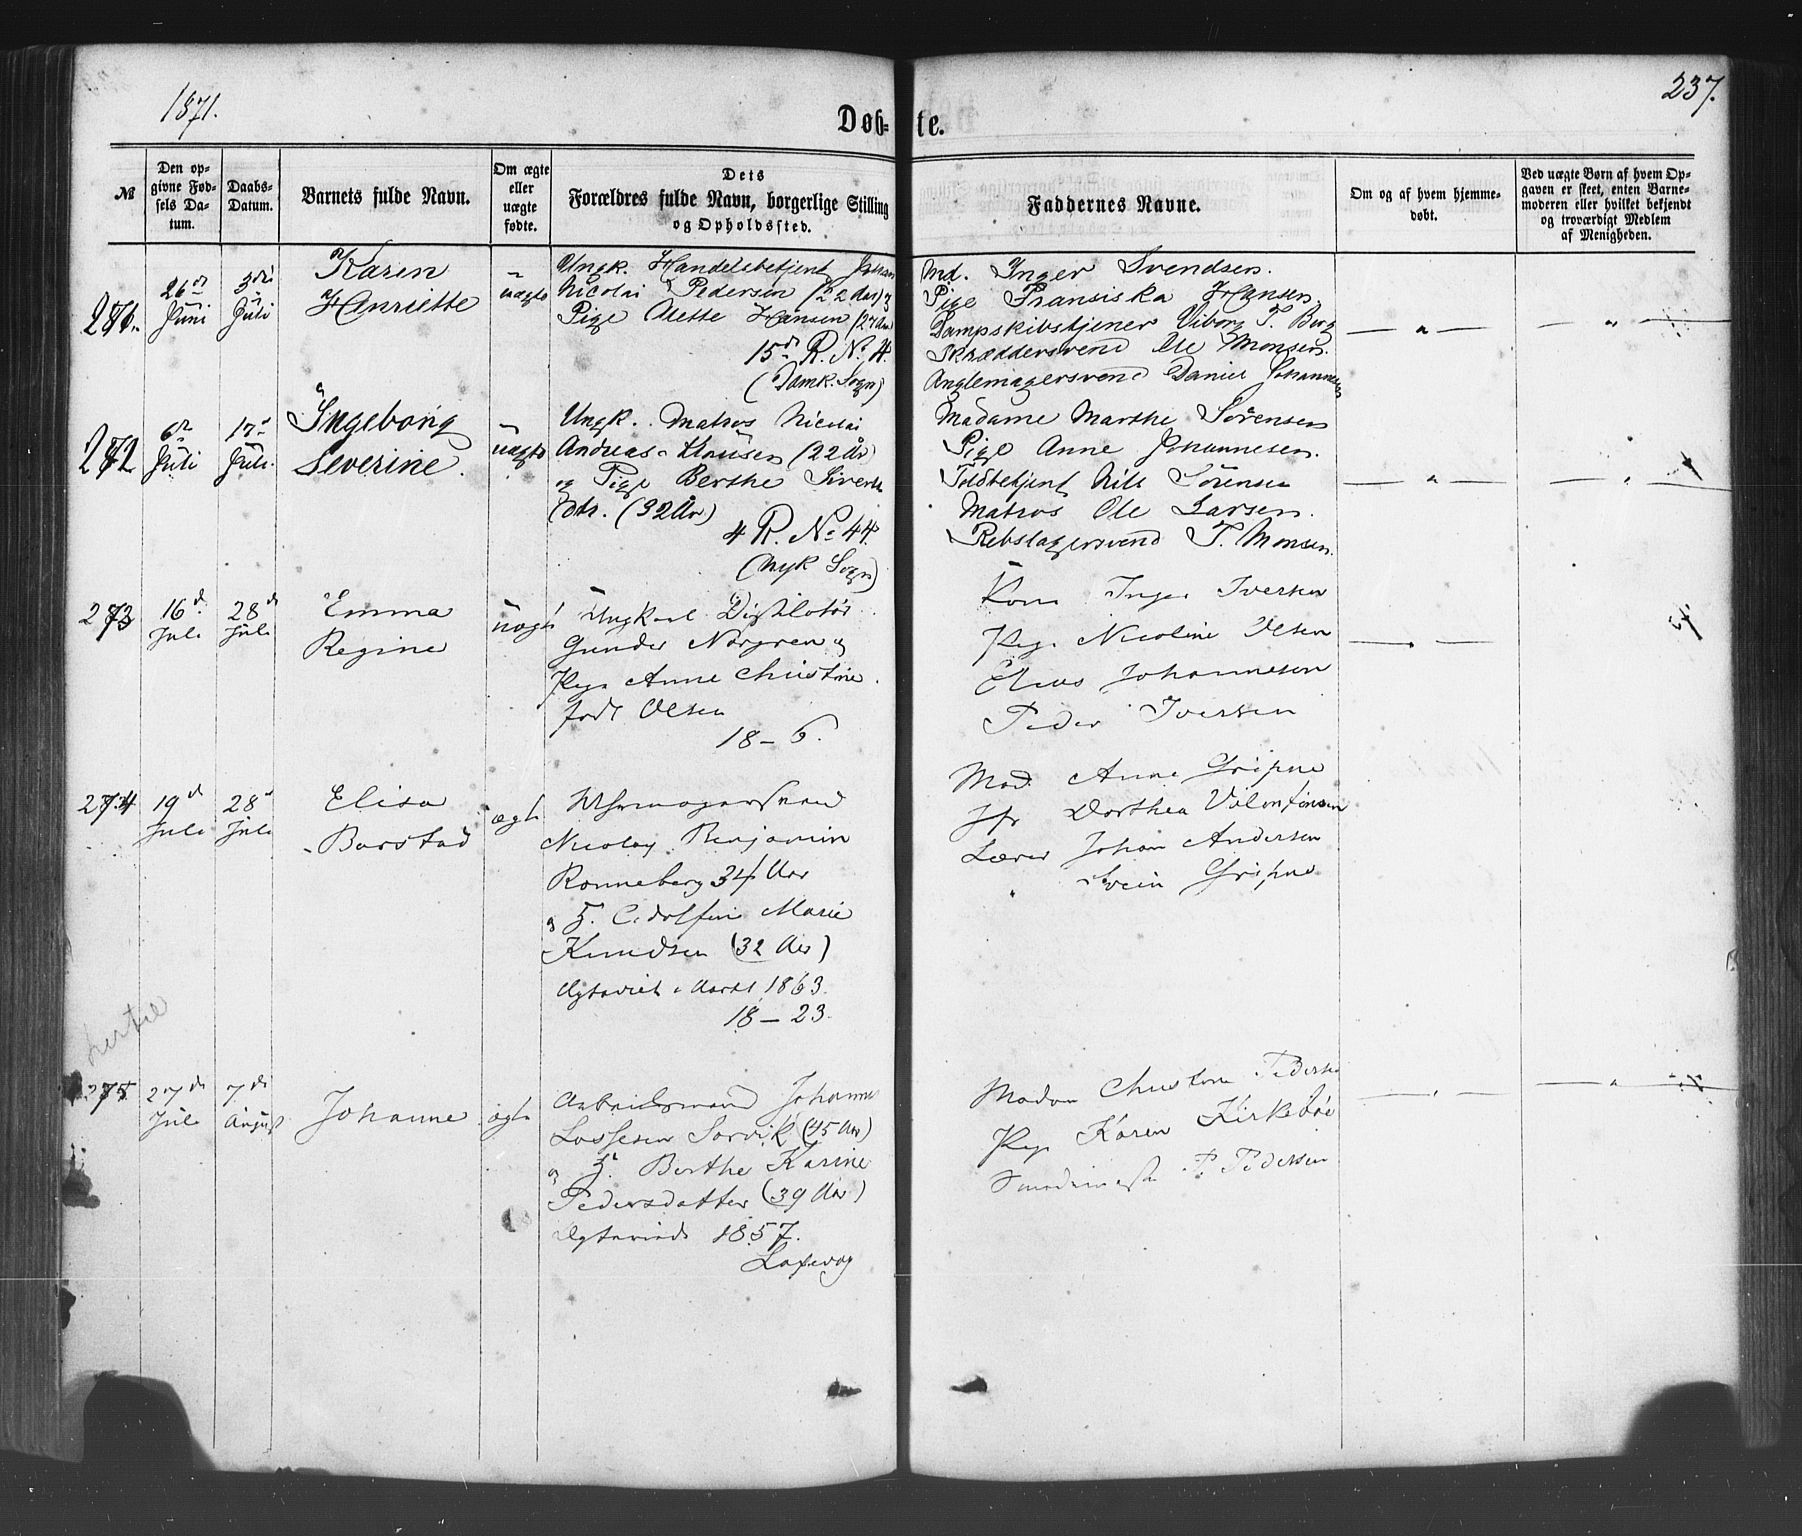 1871.
237.
Døb-te.
№
Den opgivne Fødsels Datum.
Daabs-Datum.
Barnets fulde Navn.
Om ægte eller uægte fødte.
Dets Forældres fulde Navn, borgerlige Stilling og Opholdssted.
Faddernes Navne.
Om og af hvem hjemmedøbt.
Ved uægte Børn af hvem Opgaven er skeet, enten Barnemoderen eller hvilket bekjendt og troværdigt Medlem af Menigheden.
271.
26de Juni
3die Juli
Karen
Henriette
uægte
Ungk. Handelsbetjent Johan
Nicolai Pedersen (22 Aar) og
Pige Anette Hansen (27 Aar)
15de R. No. 4.
(Domk. Sogn)
Md. Inger Svendsen.
Pige Fransiska Hansen
Dampskibstjener Viborg T. Berg
Skræddersvend Ole Monsen.
Daniel Johannesen
272
6te Juli
17de Juli.
Ingeborg
Severine.
uægte
Ungk. Matros Nicolai
Andreas Klausen (22 År)
og Pige Berthe Siverts
dtr. (32 År)
4 R. No 44.
(Nyk Sogn)
Madame Marthe Sørensen
Pige Anne Johannesen.
Toldbetjent Nils Sørensen
Matros Ole Larsen.
Rebslagersvend T. Monsen.
273
16d. Juli
28de Juli
Emma
Regine
uægt
Ungkarl Distilatør
Gunder Norgren og
Pige Anne Christine
født Olsen
18 - 6.
Kone Inger Iversen
Pige Nicoline Olsen
Elias Johannesen
Peder Iversen
274
19d Juli
28d Juli
Elisa
Borstad
ægte
Uhrmagersvend
Nicolay Benjamin
Ronneberg 34 Aar
og H. Adolfine Marie
Knudsen (32 Aar)
Ægteviet i Aaret 1863.
18 - 23.
Mad. Anne Gripne
Jfr Dorthea Valentinsen
Lærer Johan Andersen
Svein Gripne
275
27de Juli
7de August
Johanne
ægte
Arbeidsmand Johannes
Lassesen Sørvik (45 Aar)
og H. Berthe Karine
Pedersdatter (39 Aar)
Ægteviede 1857.
Laxevåg
Madam Christine Pedersen
Pige Karen Kirkebøe
P. Pedersen